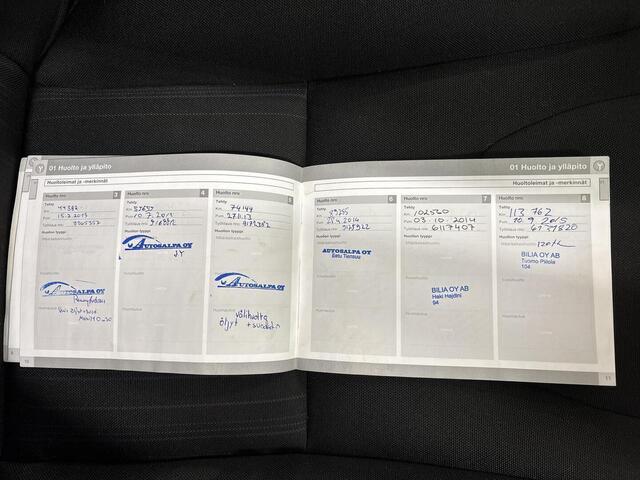 01 Huolto ja ylläpito
Huoltoleimat ja -merkinnät
Huolto nro: 3
Tehty
Km
Pvm 15.2.2013
Työtilaus nro:
Huollon tyyppi
AUTOSALPA OY
Huolto nro: 4
Tehty
Km
Pvm 10.7.2013
Työtilaus nro:
Huollon tyyppi
AUTOSALPA OY
J.Y
Huolto nro: 5
Tehty
Km 74144
Pvm 27.11.13
Työtilaus nro:
Huollon tyyppi
AUTOSALPA OY
Huomautus
välihuolto
öljyt + suodatin
10
01 Huolto ja ylläpito
Huoltoleimat ja -merkinnät
Huolto nro: 6
Tehty
Km 89255
Pvm
Työtilaus nro:
Huollon tyyppi
AUTOSALPA OY
Satu Tiensuu
Huolto nro: 7
Tehty
Km 102520
Pvm 03.10.2014
Työtilaus nro: 6117407
Huollon tyyppi
BILIA OY AB
Haki Hajdini
94
Huolto nro: 8
Tehty
Km 113 762
Pvm 10.9.2015
Työtilaus nro: 6131820
Huollon tyyppi
120tk
BILIA OY AB
Tuomo Piilola
104
11